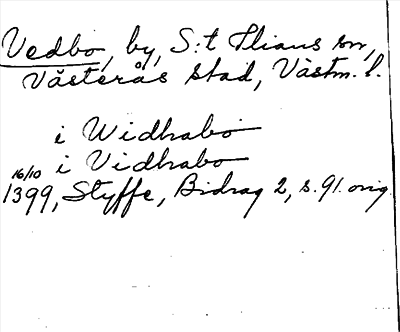 Vedbo, by, S:t Ilians sn,
Västerås stad, Västm. l.
i Widhabo
i Vidhabo
16/10 1399, Styffe, Bidrag 2, s. 91. orig.